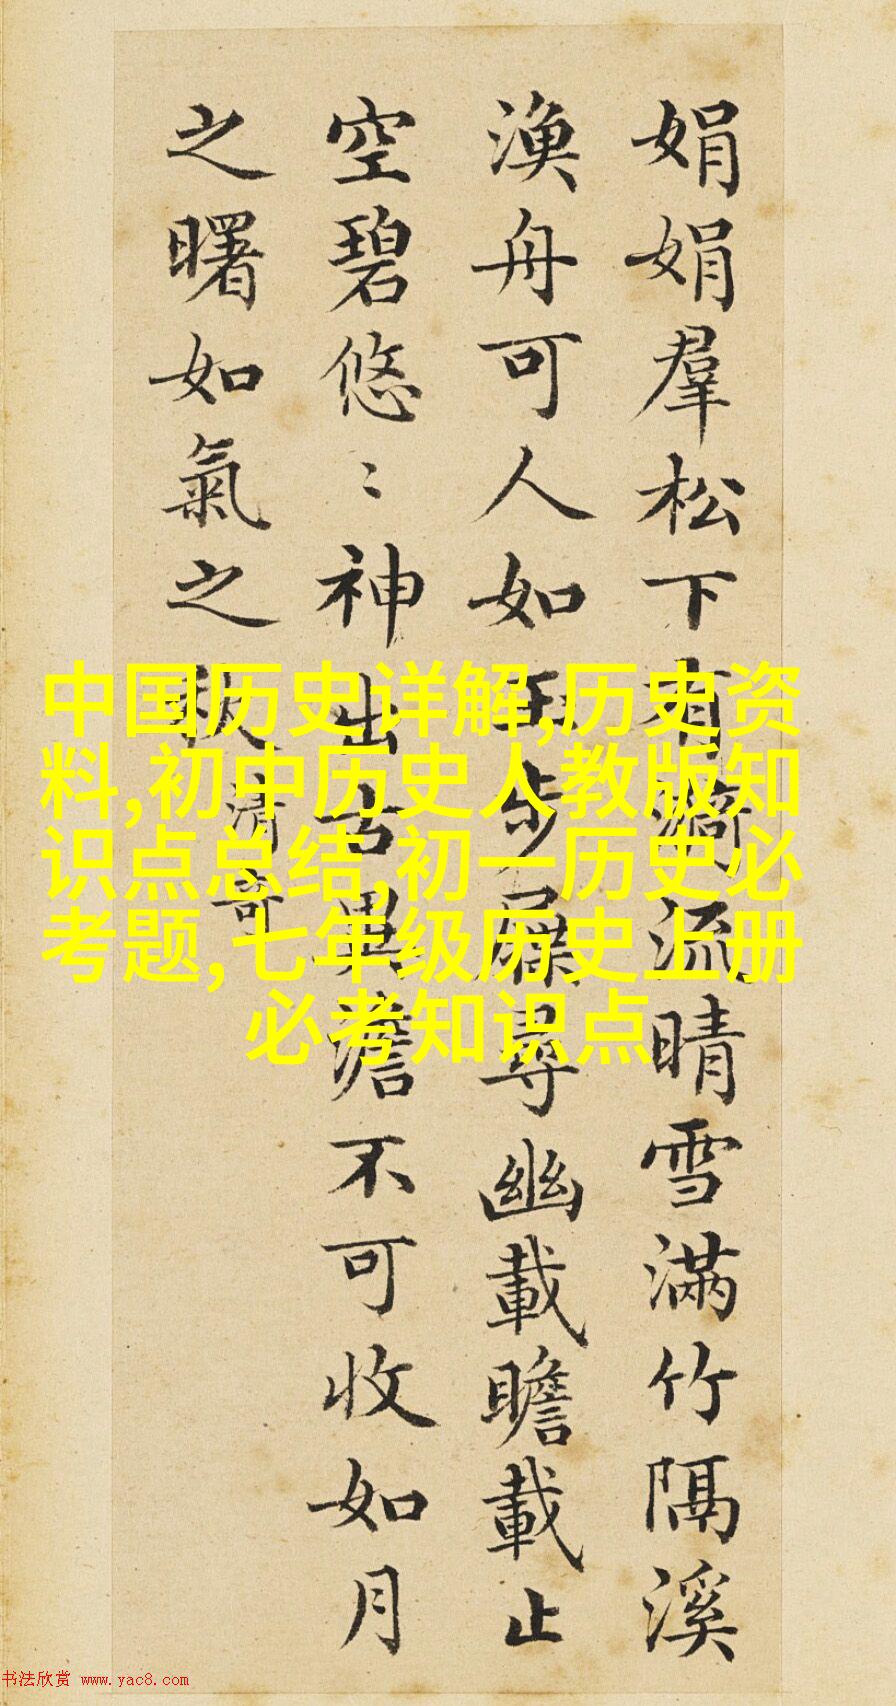 娟娟羣松下有漪流晴雪滿竹隔溪
漁舟可人如玉步屧尋幽載瞻載止
空碧悠〻神出古異澹不可收如月
之曙如氣之秋
清奇
中国历史详解,历史资
料,初中历史人教版知
识点总结,初一历史必
考题,七年级历史上册
必考知识点
书法欣赏 www.yac8.com